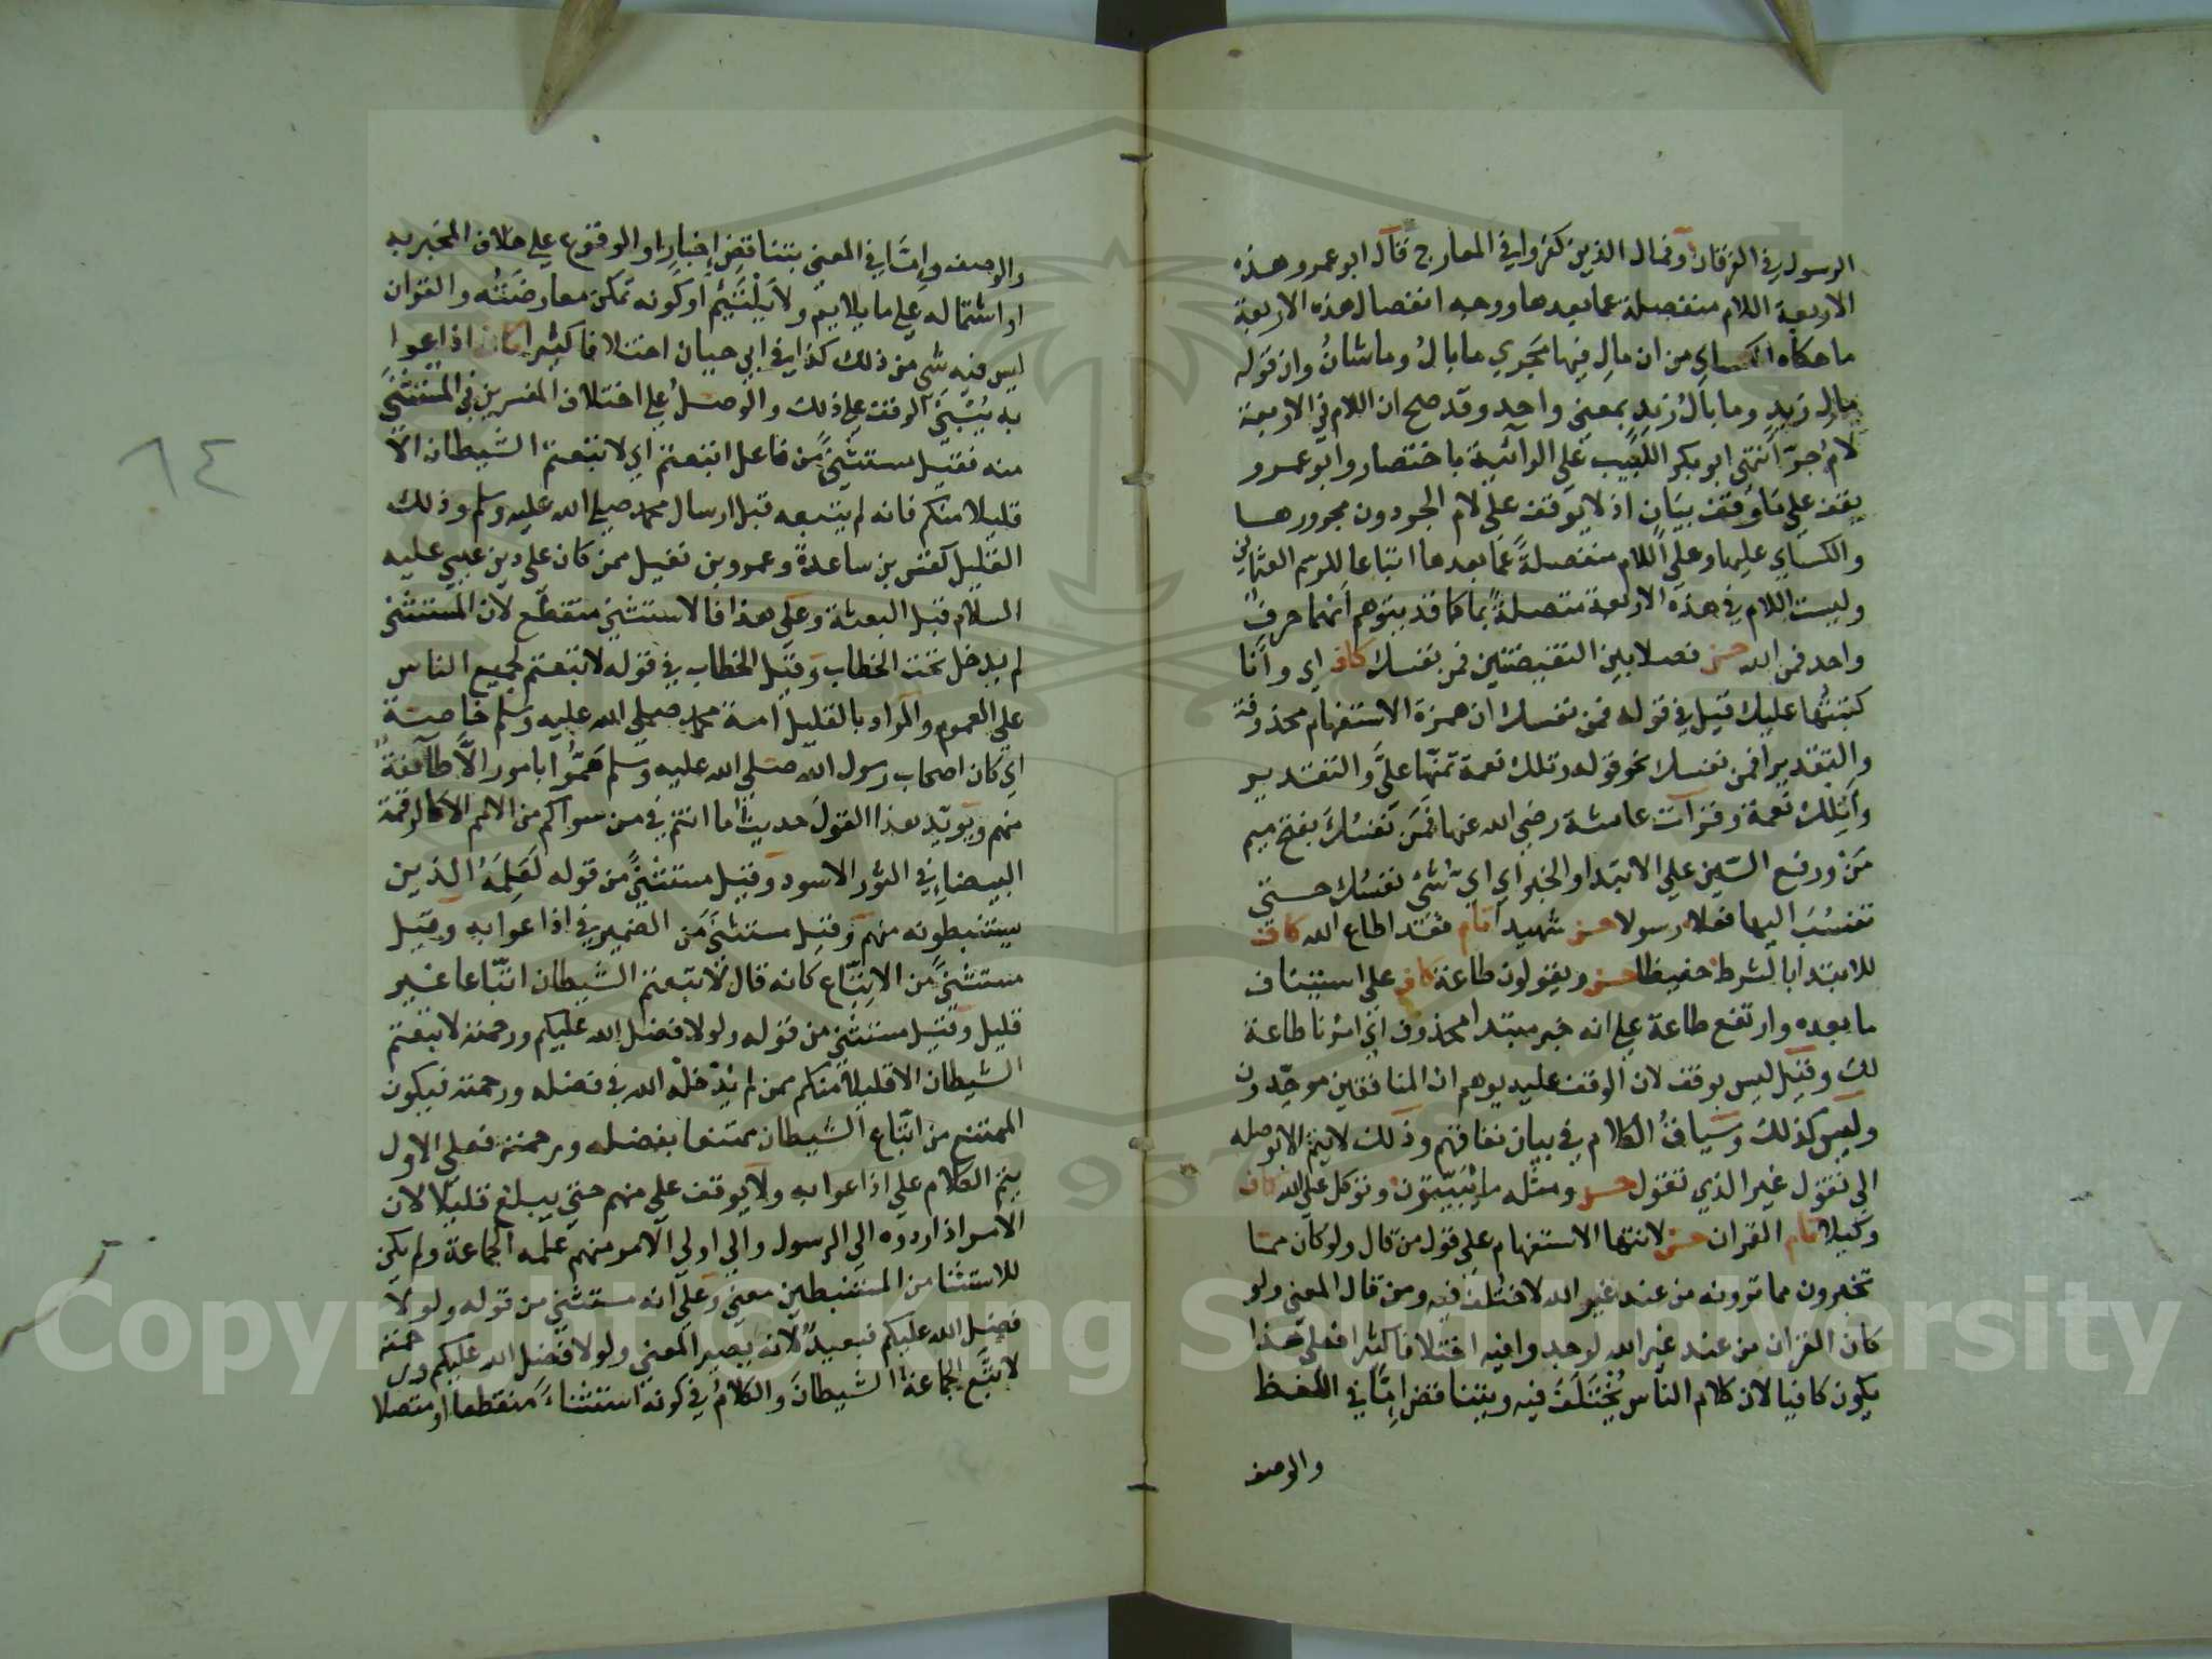 الرسول في الفرقان وفمال الذين كفروا في المعارج قال ابو عمرو هذه
الاربعة اللام منفصلة عما بعدها ووجه انفصال هذه الاربعة
ما حكاه الكساي من ان مال فيها تجري ما بال وما شان وان قوله
مال زيد وما بال زيد بمعني واحد وقد صح ان اللام في الاربعة
لام جر انتهى ابو بكر اللبيب علي الرائية باختصار وابو عمرو
يقف علي ما وقف بيان اذ لا يوقف علي لام الجر دون مجرورها
والكساي عليها وعلي اللام منفصلة عما بعدها اتباعا للرسم العثماني
وليست اللام في هذه الاربعة متصلة بما كما قد يتوهم انهما حرف
واحد فمن الله حسن فصلا بين النقيضتين فمن نفسك كاف اي وانا
كتبتها عليك قيل في قوله فمن نفسك ان همزة الاستفهام محذوفة
والتقدير افمن نفسك نحو قوله وتلك نعمة تمنها علي والتقدير
واتلك نعمة وقرات عائشة رضي الله عنها فمن نفسك بفتح ميم
من ورفع السين علي الابتدا والخبر اي اي شئ نفسك حتي
تنسب اليها فعلا رسولا حسن شهيدا تام فقد اطاع الله كاف
للابتدا بالشرط حفيظا حسن ويقولون طاعة كاف علي استيناف
ما بعده وارتفع طاعة علي انه خبر مبتدا محذوف اي امرنا طاعة
لك وقيل ليس بوقف لان الوقف عليه يوهم ان المنافقين موحدون
وليس كذلك وسياق الكلام في بيان نفاقهم وذلك لا يتم الا بوصله
الي تقول غير الذي تقول حسن ومثله ما يبيتون وتوكل علي الله كاف
وكيلا تام القران حسن لانتها الاستفهام علي قول من قال ولو كان مما
تخبرون مما ترونه من عند غير الله لاختلف فيه ومن قال المعني ولو
كان القران من عند غير الله لوجدوا فيه اختلافا كثيرا فعلي هذا
يكون كافيا لان كلام الناس يختلف فيه ويتناقض اما في اللفظ
والوصف
والوصف واما في المعني بتناقض اخبار او الوقوع علي خلاف المخبر به
او اشتماله علي ما يلايم ولا يلتئم او كونه تمكن معارضته والقران
ليس فيه شي من ذلك كذا في ابي حيان اختلافا كثيرا كاف اذاعوا
به يبتني الوقف علي ذلك والوصل علي اختلاف المفسرين في المستثني
منه فقيل مستثني من فاعل اتبعتم اي لاتبعتم الشيطان الا
قليلا منكم فانه لم يتبعه قبل ارسال محمد صلي الله عليه وسلم وذلك
القليل كقس بن ساعدة وعمرو بن نفيل ممن كان علي دين عيسي عليه
السلام قبل البعثة وعلي هذا فالاستثني منقطع لان المستثني
لم يدخل تحت الخطاب وقيل الخطاب في قوله لاتبعتم لجميع الناس
علي العموم والمراد بالقليل امة محمد صلي الله عليه وسلم خاصة
اي كان اصحاب رسول الله صلي الله عليه وسلم هموا بامور الا طائفة
منهم ويؤيد هذا القول حديث ما انتم في من سواكم من الامم الا كالرقمة
البيضاء في الثور الاسود وقيل مستثني من قوله لعلمه الذين
يستنبطونه منهم وقيل مستثني من الضمير في اذاعوا به وقيل
مستثني من الاتباع كانه قال لاتبعتم الشيطان اتباعا غير
قليل وقيل مستثني من قوله ولولا فضل الله عليكم ورحمته لاتبعتم
الشيطان الا قليلا منكم ممن لم يدخله الله في فضله ورحمته فيكون
الممتنع من اتباع الشيطان ممتنعا بفضله ورحمته فعلي الاول
يتم الكلام علي اذاعوا به ولا يوقف علي منهم حتي يبلغ قليلا لان
الامر اذا ردوه الي الرسول والي اولي الامر منهم علمه الجماعة ولم يكن
للاستثنا من المستنبطين معني وعلي انه مستثني من قوله ولولا
فضل الله عليكم فبعيد لانه يصير المعني ولولا فضل الله عليكم ورحمته
لاتبع الجماعة الشيطان والكلام في كونه استثناء منقطعا او متصلا
٦٤
Copyright © King Saud University
1957